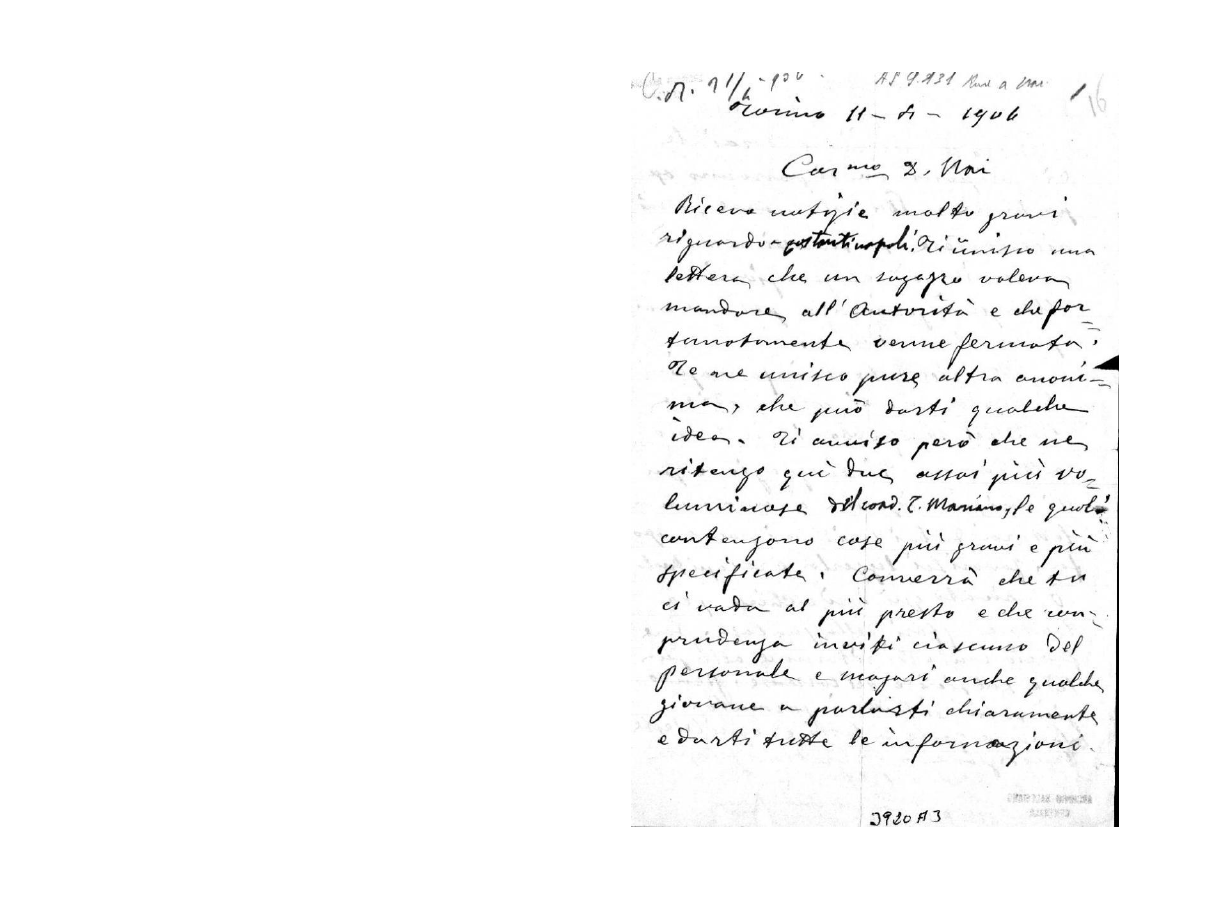 AS 9.131 Rua a Nai
16
Torino 11 - 5 - 1906
Car.mo D. Nai
Ricevo notizie molto gravi
riguardo a Costantinopoli. Ti unisco una
lettera che un ragazzo voleva
mandare all'Autorità e che for-
tunatamente venne fermata.
Te ne unisco pure altra anoni-
ma, che può darti qualche
idea. Ti avviso però che ne
ritengo quì due assai più vo-
luminose del coad. T. Mariano, le quali
contengono cose più gravi e più
specificate. Converrà che tu
ci vada al più presto e che con
prudenza inviti ciascuno del
personale e magari anche qualche
giovane a parlarti chiaramente
e darti tutte le informazioni.
ARCHIVIO SALESIANO
CENTRALE
3920 A3